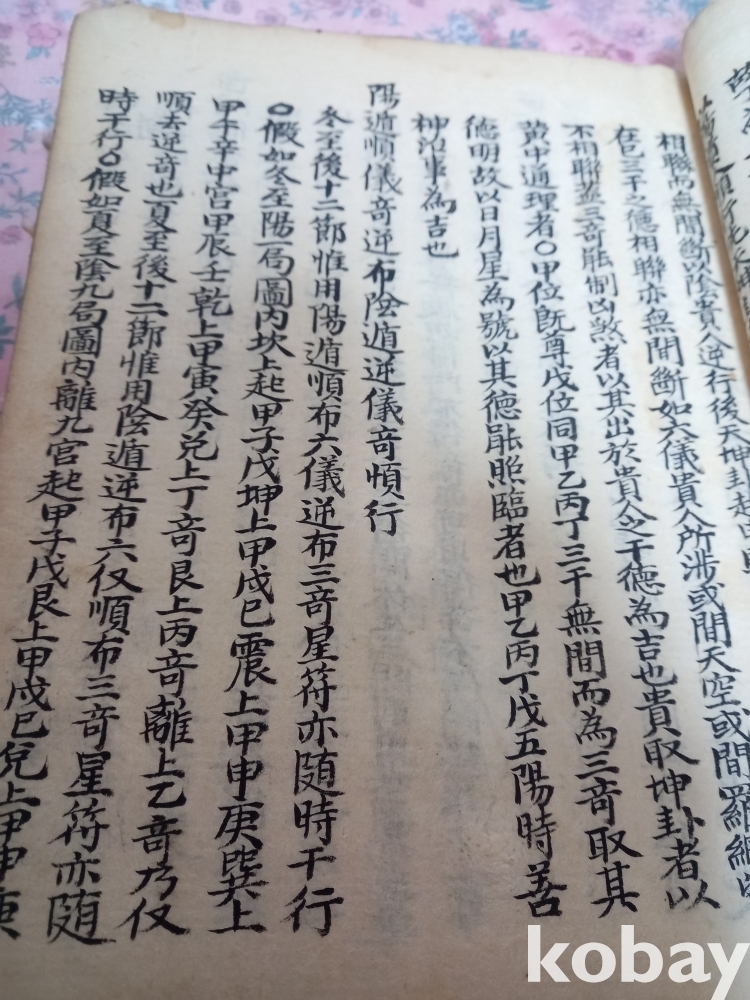 相聯而無間斷以陰貴人逆行後天坤卦起
在巳三干之德相聯亦無間斷如六儀貴人所涉或間天空或間羅網
不相聯蓋三奇能制凶煞者以其出於貴人之干德為吉也貴取坤卦者以
黃中通理者〇甲位既尊戊位同甲乙丙丁三干無間而為三奇取其
德明故以日月星為號以其德能照臨者也甲乙丙丁戊五陽時善
神治事為吉也
陽遁順儀奇逆布陰遁逆儀奇順行
冬至後十二節惟用陽遁順布六儀逆布三奇星符亦隨時干行
〇假如冬至陽一局圖內坎上起甲子戊坤上甲戌巳震上甲申庚巽上
甲午辛中宮甲辰壬乾上甲寅癸兌上丁奇艮上丙奇離上乙奇乃仅
順去逆奇也夏至後十二節惟用陰遁逆布六仅順布三奇星符亦隨
時干行〇假如夏至陰九局圖內離九宮起甲子戊艮上甲戌巳兌上甲申庚
kobay